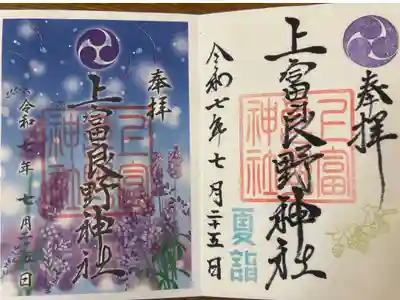 奉拝
上富良野神社
上富
神社
令和
七年
七月二十五日
奉拝
上富良野神社
上富
神社
令和七年七月二十五日
夏詣